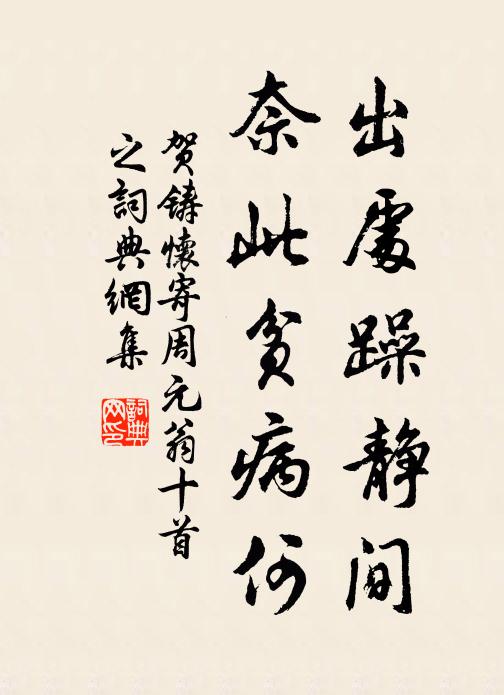 出處躁静间
奈此貧病何
贺铸懷寄周元翁十首
之詞典網集
詞典
网印